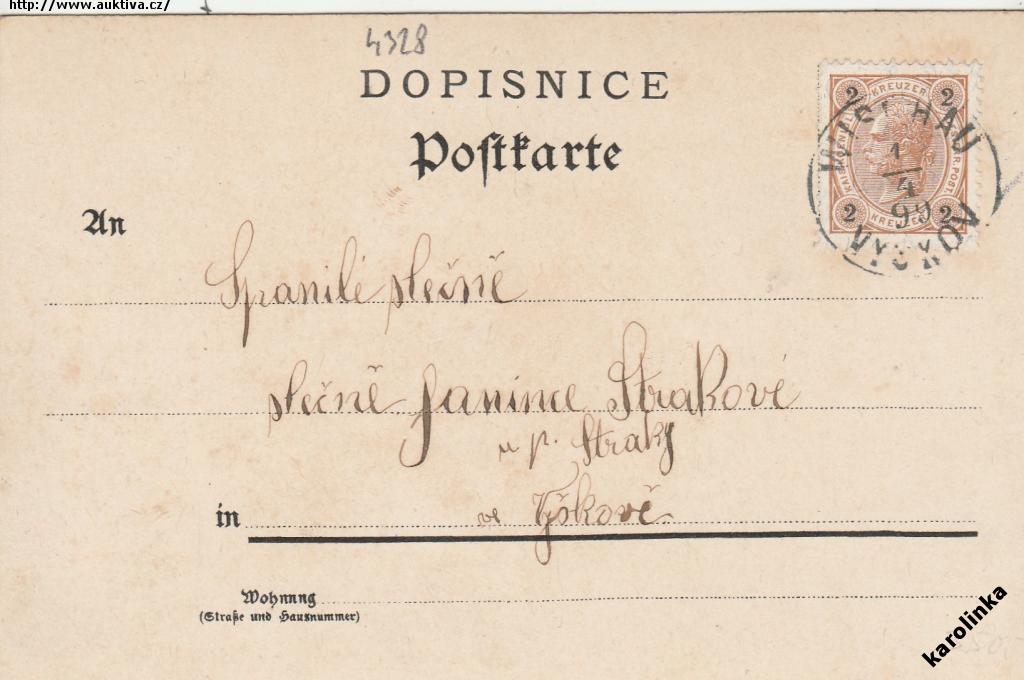 http://www.auktiva.cz/
4328
DOPISNICE
Postkarte
2 KREUZER 2
WISCHAU
1/4
99
VYŠKOV
2 KREUZER 2
An
Spanilé slečně
slečně Janince Strakové
u p. Straky
in ve Vyškově
Wohnnng
(Straße und Hausnummer)
karolinka